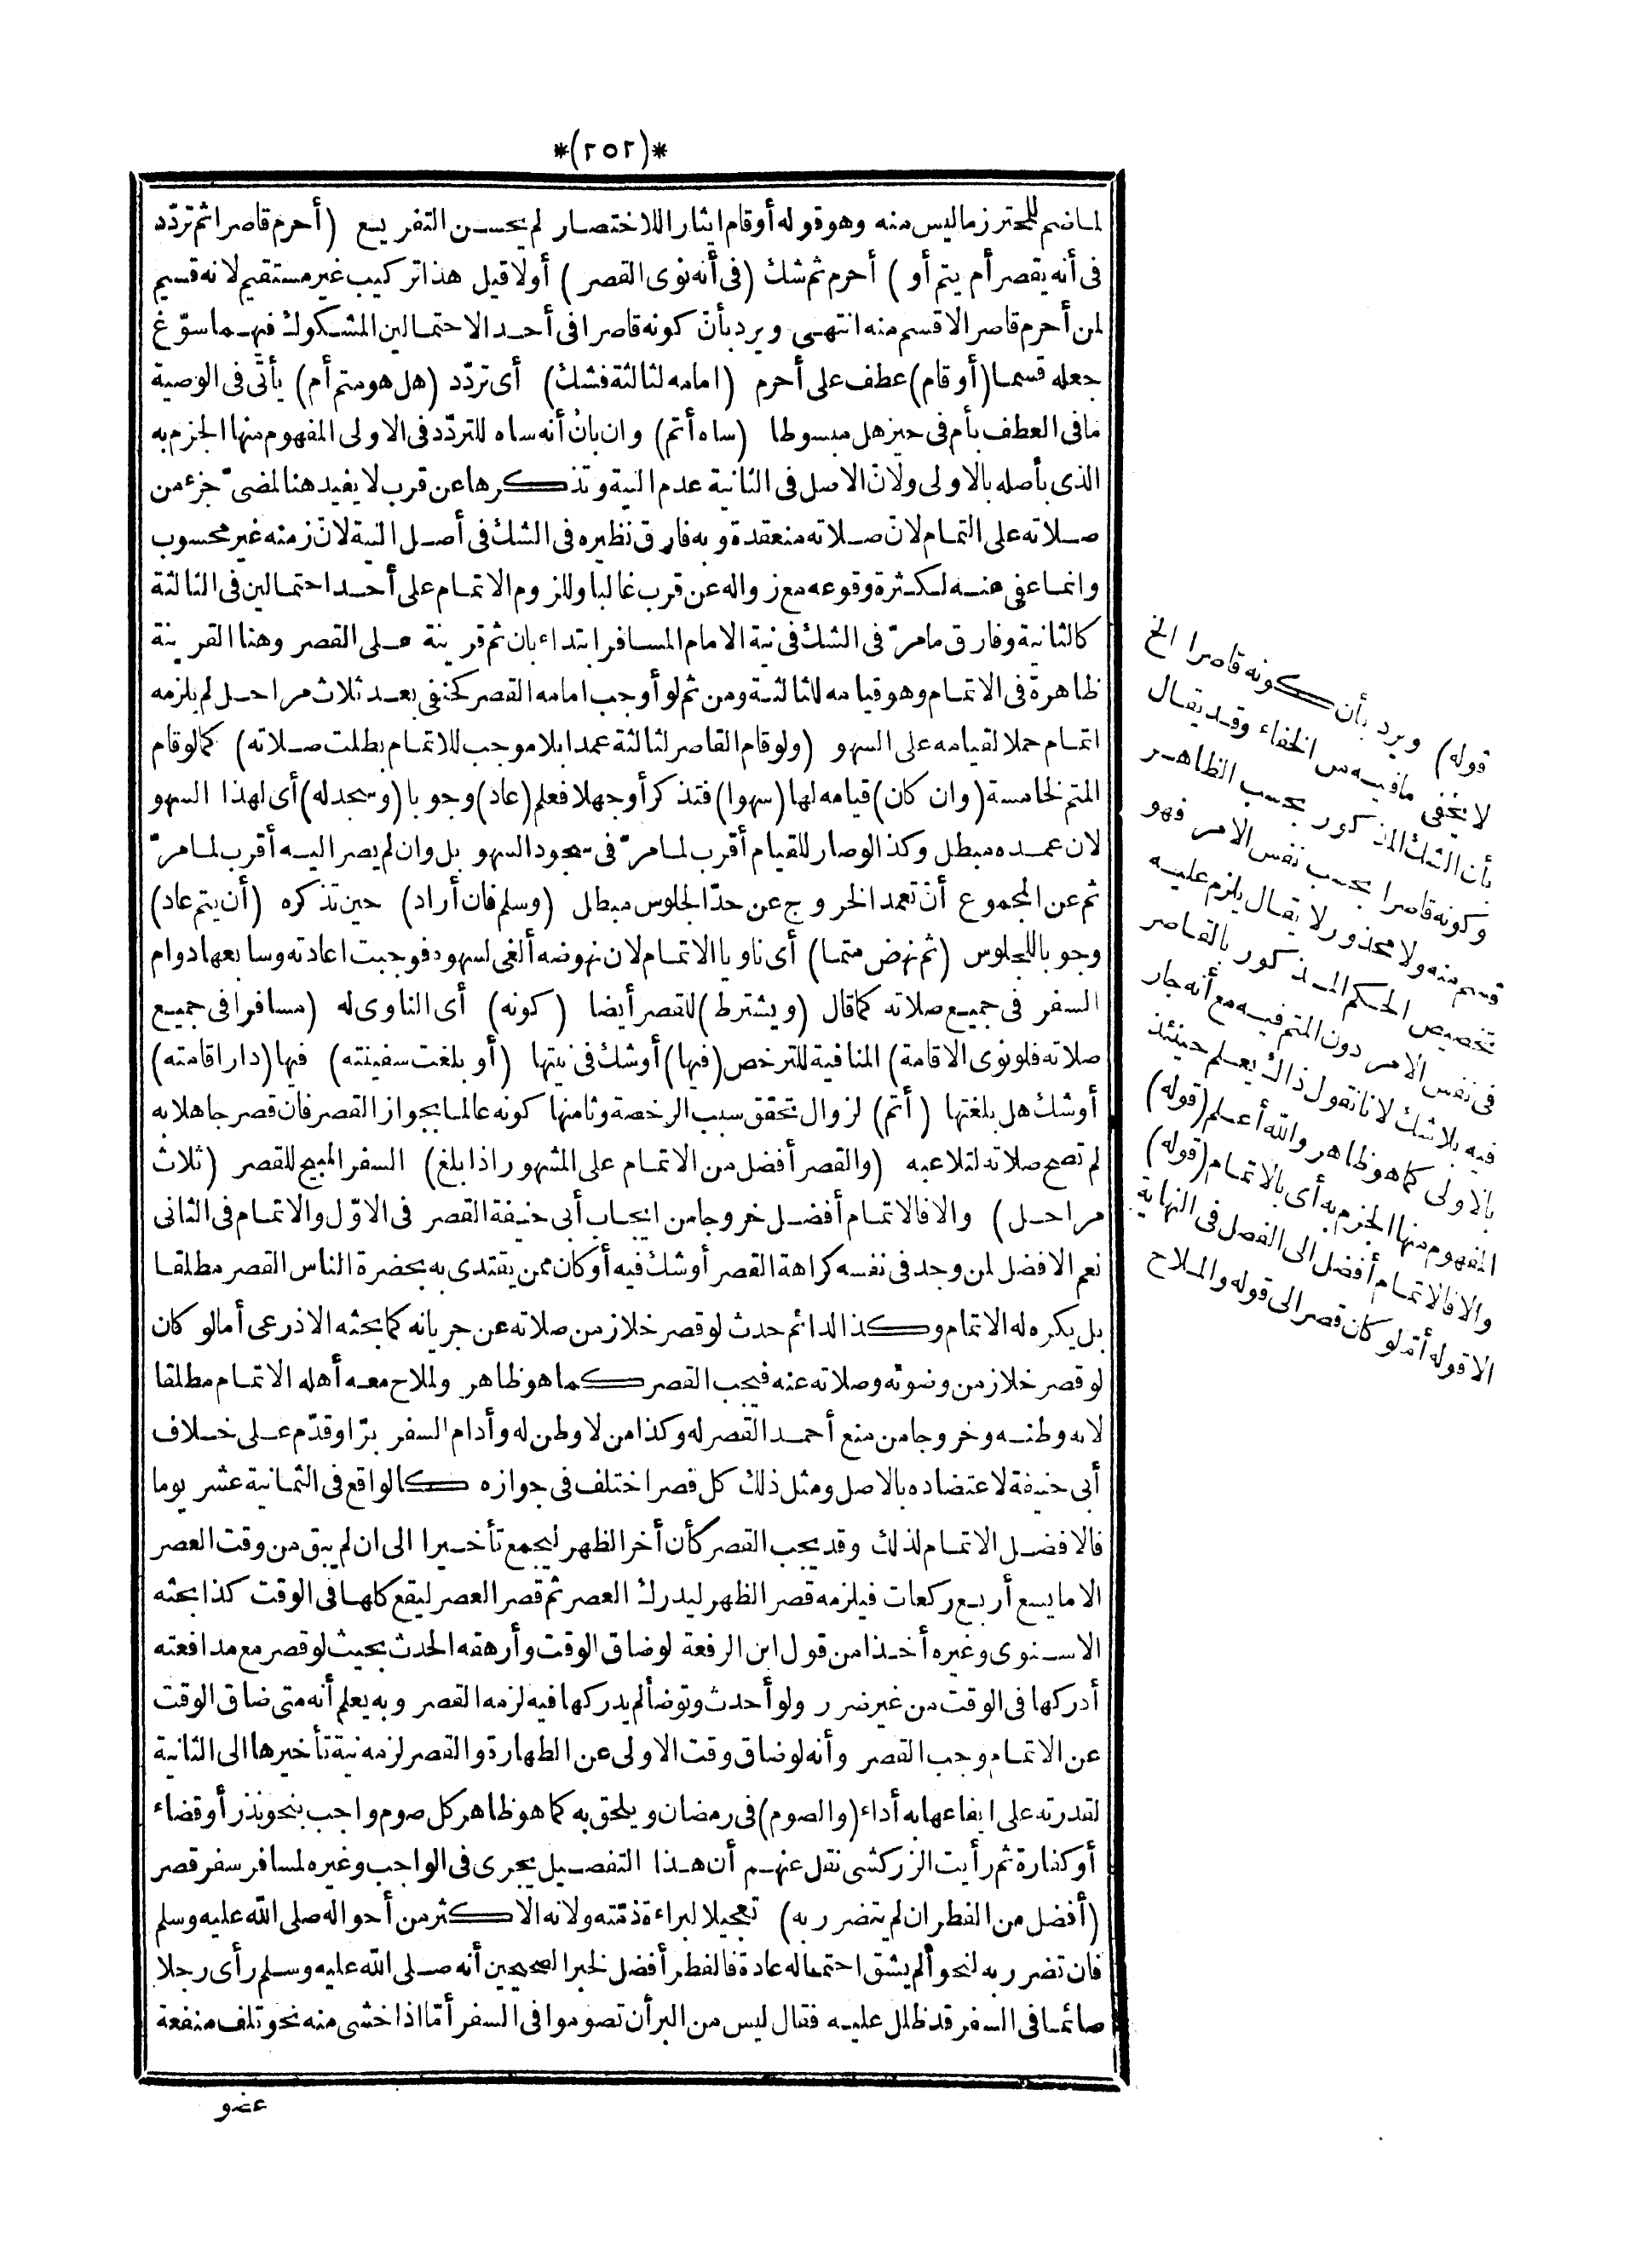 *(٢٥٢)*
لما ضم للمحترز ما ليس منه وهو قوله أو قام ايثارا للاختصار لم يحسن التفريع (أحرم قاصرا ثم تردّد
فى أنه يقصر أم يتم أو) أحرم ثم شك (فى أنه نوى القصر) أولا قيل هذا تركيب غير مستقيم لانه قسيم
لمن أحرم قاصرا لا قسم منه انتهى ويرد بأنّ كونه قاصرا فى أحد الاحتمالين المشكوك فيهما سوّغ
جعله قسما (أو قام) عطف على أحرم (امامه لثالثة فشك) أى تردّد (هل هو متم أم) يأتى فى الوصية
ما فى العطف بأم فى حيز هل مبسوطا (ساه أتم) وان بان أنه ساه للتردّد فى الاولى المفهوم منها الجزم به
الذى بأصله بالاولى ولانّ الاصل فى الثانية عدم النية وتذكرها عن قرب لا يفيد هنا لمضىّ جزء من
صلاته على التمام لانّ صلاته منعقدة وبه فارق نظيره فى الشك فى أصل النية لانّ زمنه غير محسوب
وانما عفى عنه لكثرة وقوعه مع زواله عن قرب غالبا وللزوم الاتمام على أحد احتمالين فى الثالثة
كالثانية وفارق ما مرّ فى الشك فى نية الامام المسافر ابتداء بان ثم قرينة على القصر وهنا القرينة
ظاهرة فى الاتمام وهو قيامه للثالثة ومن ثم لو أوجب امامه القصر كحنفى بعد ثلاث مراحل لم يلزمه
اتمام حملا لقيامه على السهو (ولو قام القاصر لثالثة عمدا بلا موجب للاتمام بطلت صلاته) كما لو قام
المتم لخامسة (وان كان) قيامه لها (سهوا) فتذكر أو جهلا فعلم (عاد) وجوبا (وسجد له) أى لهذا السهو
لان عمده مبطل وكذا لو صار للقيام أقرب لما مرّ فى سجود السهو بل وان لم يصر اليه أقرب لما مرّ
ثم عن المجموع أنّ تعمد الخروج عن حدّ الجلوس مبطل (وسلم فان أراد) حين تذكره (أن يتم عاد)
وجوبا للجلوس (ثم نهض متما) أى ناويا الاتمام لان نهوضه ألغى لسهوه فوجبت اعادته وسابعها دوام
السفر فى جميع صلاته كما قال (ويشترط) للقصر أيضا (كونه) أى الناوى له (مسافرا فى جميع
صلاته فلو نوى الاقامة) المنافية للترخص (فيها) أو شك فى نيتها (أو بلغت سفينته) فيها (دار اقامته)
أو شك هل بلغتها (أتم) لزوال تحقق سبب الرخصة وثامنها كونه عالما بجواز القصر فان قصر جاهلا به
لم تصح صلاته لتلاعبه (والقصر أفضل من الاتمام على المشهور اذا بلغ) السفر المبيح للقصر (ثلاث
مراحل) والا فالاتمام أفضل خروجا من ايجاب أبى حنيفة القصر فى الاوّل والاتمام فى الثانى
نعم الافضل لمن وجد فى نفسه كراهة القصر أو شك فيه أو كان ممن يقتدى به بحضرة الناس القصر مطلقا
بل يكره له الاتمام وكذا لدائم حدث لو قصر خلا زمن صلاته عن جريانه كما بحثه الاذرعى أما لو كان
لو قصر خلا زمن وضوئه وصلاته عنه فيجب القصر كما هو ظاهر ولملاح معه أهله الاتمام مطلقا
لانه وطنه وخروجا من منع أحمد القصر له وكذا من لا وطن له وأدام السفر برّا وقدّم على خلاف
أبى حنيفة لاعتضاده بالاصل ومثل ذلك كل قصر اختلف فى جوازه كالواقع فى الثمانية عشر يوما
فالافضل الاتمام لذلك وقد يجب القصر كأن أخر الظهر ليجمع تأخيرا الى ان لم يبق من وقت العصر
الا ما يسع أربع ركعات فيلزمه قصر الظهر ليدرك العصر ثم قصر العصر ليقع كلها فى الوقت كذا بحثه
الاسنوى وغيره أخذا من قول ابن الرفعة لو ضاق الوقت وأرهقه الحدث بحيث لو قصر مع مدافعته
أدركها فى الوقت من غير ضرر ولو أحدث وتوضأ لم يدركها فيه لزمه القصر وبه يعلم أنه متى ضاق الوقت
عن الاتمام وجب القصر وأنه لو ضاق وقت الاولى عن الطهارة والقصر لزمه نية تأخيرها الى الثانية
لقدرته على ايقاعها به أداء (والصوم) فى رمضان ويلحق به كما هو ظاهر كل صوم واجب بنحو نذر أو قضاء
أو كفارة ثم رأيت الزركشى نقل عنهم أن هذا التفصيل يجرى فى الواجب وغيره لمسافر سفر قصر
(أفضل من الفطر ان لم يتضرر به) تعجيلا لبراءة ذمّته ولانه الاكثر من أحواله صلى الله عليه وسلم
فان تضرر به لنحو ألم يشق احتماله عادة فالفطر أفضل لخبر الصحيحين أنه صلى الله عليه وسلم رأى رجلا
صائما فى السفر قد ظلل عليه فقال ليس من البر أن تصوموا فى السفر أمّا اذا خشى منه نحو تلف منفعة
عضو
قوله) ويرد بأن كونه قاصرا الخ
لا يخفى ما فيه من الخفاء وقد يقال
بأن الشك المذكور بحسب الظاهر
وكونه قاصرا بحسب نفس الامر فهو
قسم منه ولا محذور لا يقال يلزم عليه
تخصيص الحكم المذكور بالقاصر
فى نفس الامر دون المتم فيه مع أنه جار
فيه بلا شك لانا نقول ذاك يعلم حينئذ
بالاولى كما هو ظاهر والله أعلم (قوله)
المفهوم منها الجزم به أى بالاتمام (قوله)
والا فالاتمام أفضل الى الفصل فى النهاية
الا قوله أمّا لو كان قصر الى قوله والملاح